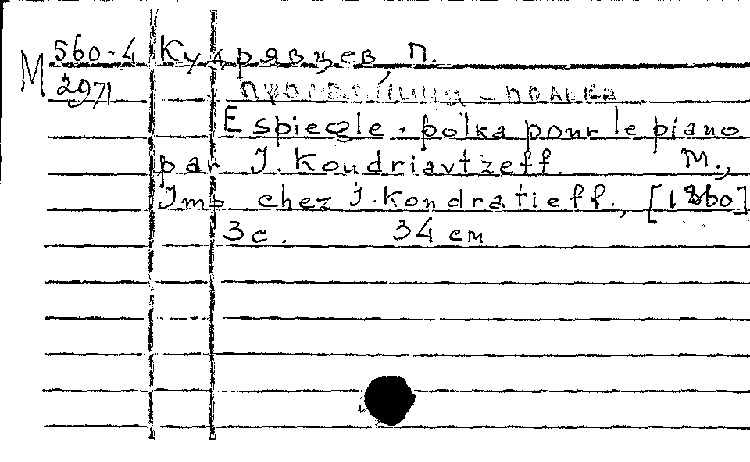 M 560-4 Кудрявцев, П.
2971
- полька
Espiegle. polka pour le piano
par J. Koudriavtzeff. М.,
Imp. chez J. Kondratieff., [1860]
3 с. 34 см